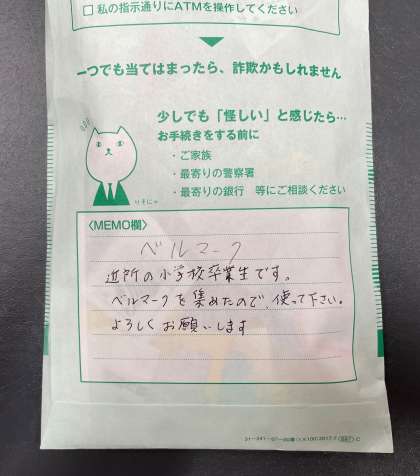 □ 私の指示通りにATMを操作してください
一つでも当てはまったら、詐欺かもしれません
少しでも「怪しい」と感じたら…
お手続きをする前に
・ご家族
・最寄りの警察署
・最寄りの銀行 等にご相談ください
りそにゃ
〈MEMO欄〉
ベルマーク
近所の小学校卒業生です。
ベルマークを集めたので、使って下さい。
よろしくお願いします